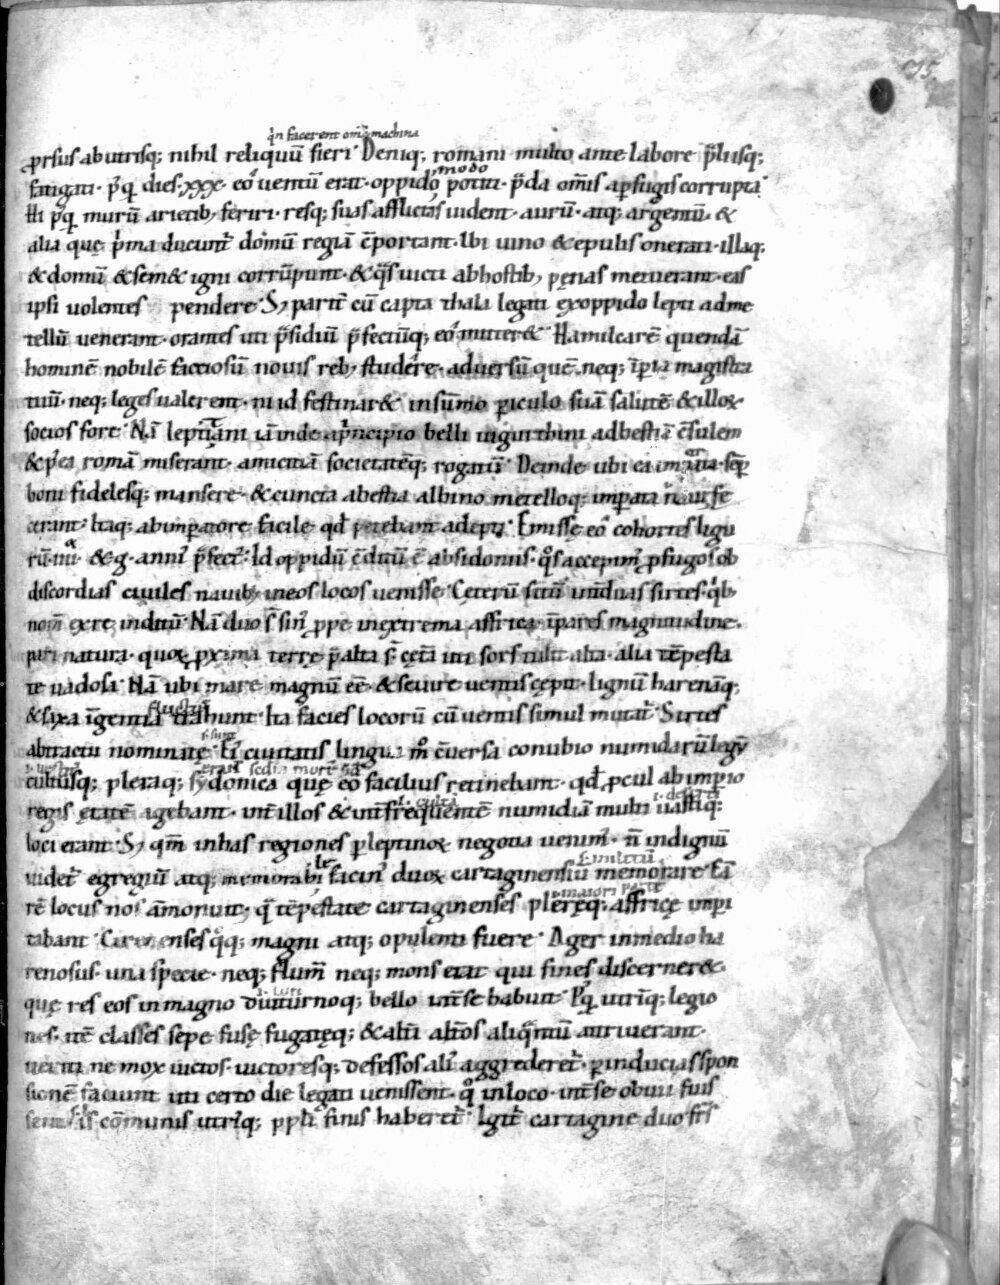 75
qin facerent om̄a machina
prsus ab utrisq; nihil reliquū fieri. Deniq; romani multo ante labore p̄liisq;
fatigati. p̃q̄ dies .xxx. eo᷒ uentū erat. oppido modo potiti. p̄da om̄is a pfugis corrupta.
Hi p̃q̄ murū arietib; feriri. resq; suas afflictas uident. aurū. atq; argentū. &
alia quę p̃ma ducunt᷒ domū regiā c̄portant. Ibi uino & epulis onerati. illaq;
& domū & sem& igni corrūpunt. & q̄s uicti ab hostib; pęnas metuerant. eas
ipsi uolentes pendere. S; parit᷒ cū capta thala legati ex oppido lepti ad me
tellū uenerant. orantes uti p̄sidiū p̄fectūq; eo᷒ mitter&. Hamilcarē quendā
hominē nobilē factiosū nouis reb; studere. aduersū quē. neq; īperia magistra
tuū. neq; leges ualerent. ni id festinar& in sūmo piculo suā salutē & illoꝝ
socios fore. Nā leptitani iā inde a p̃ncipio belli iugurthini ad bestiā c̄sulem
& p̃ea romā miserant. amicitiā societatēq; rogatū. Deinde ubi ea impetrata. semp
boni fidelesq; mansere. & cuncta a bestia albino metelloq; impata nauit̃ fe
cerant. Itaq; ab impatore facile qd̄ petebant adepti. Emissę eo᷒ cohortes ligu
rū .iiii. & g. anni᷒ p̄fect᷒. Id oppidū c̄ditū ē a bsidoniis. q̄s accepim᷒ pfugos ob
discordias ciuiles nauib; in eos locos uenisse. Cęterū sitū int̄ duas sirtes. q̃b;
nom̄ ex re inditū. Nā duo s̄ sin᷒ ppe in extrema affrica. īpares magnitudine.
pari natura. quoꝝ pxima terrę p̄alta s̄. cęt̄a uti fors tulit alta. alia tēpesta
te uadosa. Nā ubi mare magnū eē. & seuire uentis cępit. lignū harenāq;
& saxa īgentia fluctus trahunt. Ita facies locorū cū uentis simul mutat᷒. Sirtes
ab tractu nominatę. Ei᷒ ciuitatis lingua m̊ c̄uersa conubio numidarū. legū
cultusq; pleraq; sydonica quę eo᷒ facilius retinebant. qd̄ pcul ab impio
regis ętatē agebant. int̄ illos & int̄ frequentē numidiā multi uastiq;
loci erant. S; qm̄ in has regiones p leptinoꝝ negotia uenim᷒. n̄ indignū
uidet᷒ egregiū atq; memorabile facin᷒ duoꝝ cartaginensiū memorare. Eā
rē locus nos āmonuit. q̄ tēpestate cartaginenses pleręq; affricę impi
tabant. Cirenenses q᷒q; magni atq; opulenti fuere. Ager in medio ha
renosus. una specie. neq; flum̄ neq; mons erat qui fines discerner&.
quę res eos in magno diuturnoq; bello int̄ se habuit. P᷒q̄ utrīq; legio
nes. itē classes sepe fusę fugatęq; & alt̄i alt̄os aliq̄ntū attriuerant.
ueriti ne mox uictos. uictoresq; defessos ali᷒ aggrederet᷒. p inducias spon
sionē faciunt uti certo die legati uenissent. q᷒ in loco. int̄ se obuii fuis
sent. is cōmunis utriq; ppli finis haberet᷒. Igit᷒ cartagine duo fr̄s